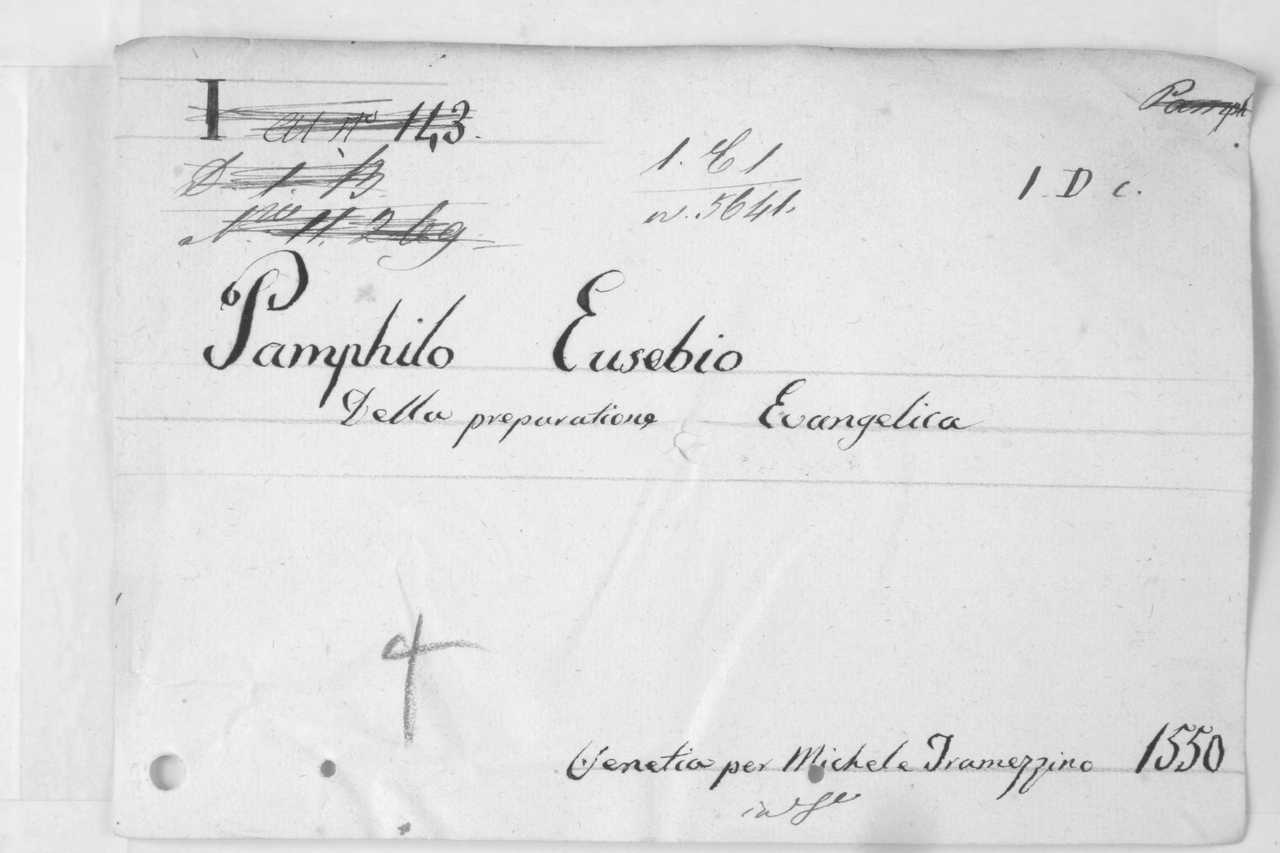 I 143.
Pamph
1. B
1. C 1
n. 5641.
1 D c.
N. 11. 2 leg
Pamphilo Eusebio
Della preparatione Evangelica
4
Venetia per Michele Tramezzino 1550
in 8º